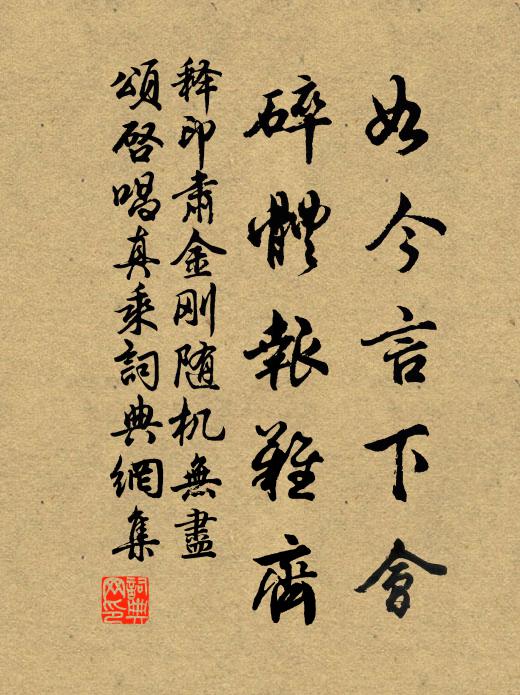 如今言下會
碎體報難齊
释印肃金刚随机無盡
頌啓唱真乘詞典網集
詞典網印